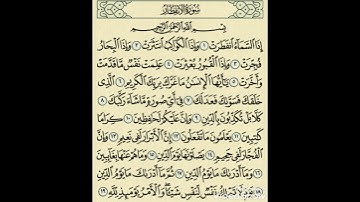 سورة الانفطار
بسم الله الرحمن الرحيم
إذا السماء انفطرت ١ وإذا الكواكب انتثرت ٢ وإذا البحار
فجرت ٣ وإذا القبور بعثرت ٤ علمت نفس ما قدمت
وأخرت ٥ يأيها الإنسن ما غرك بربك الكريم ٦ الذي
خلقك فسوىك فعدلك ٧ في أي صورة ما شاء ركبك ٨
كلا بل تكذبون بالدين ٩ وإن عليكم لحفظين ١٠ كراما
كتبين ١١ يعلمون ما تفعلون ١٢ إن الأبرار لفي نعيم ١٣ وإن
الفجار لفي جحيم ١٤ يصلونها يوم الدين ١٥ وما هم عنها بغائبين
١٦ وما أدرىك ما يوم الدين ١٧ ثم ما أدرىك ما يوم الدين
١٨ يوم لا تملك نفس لنفس شيئا والأمر يومئذ لله ١٩